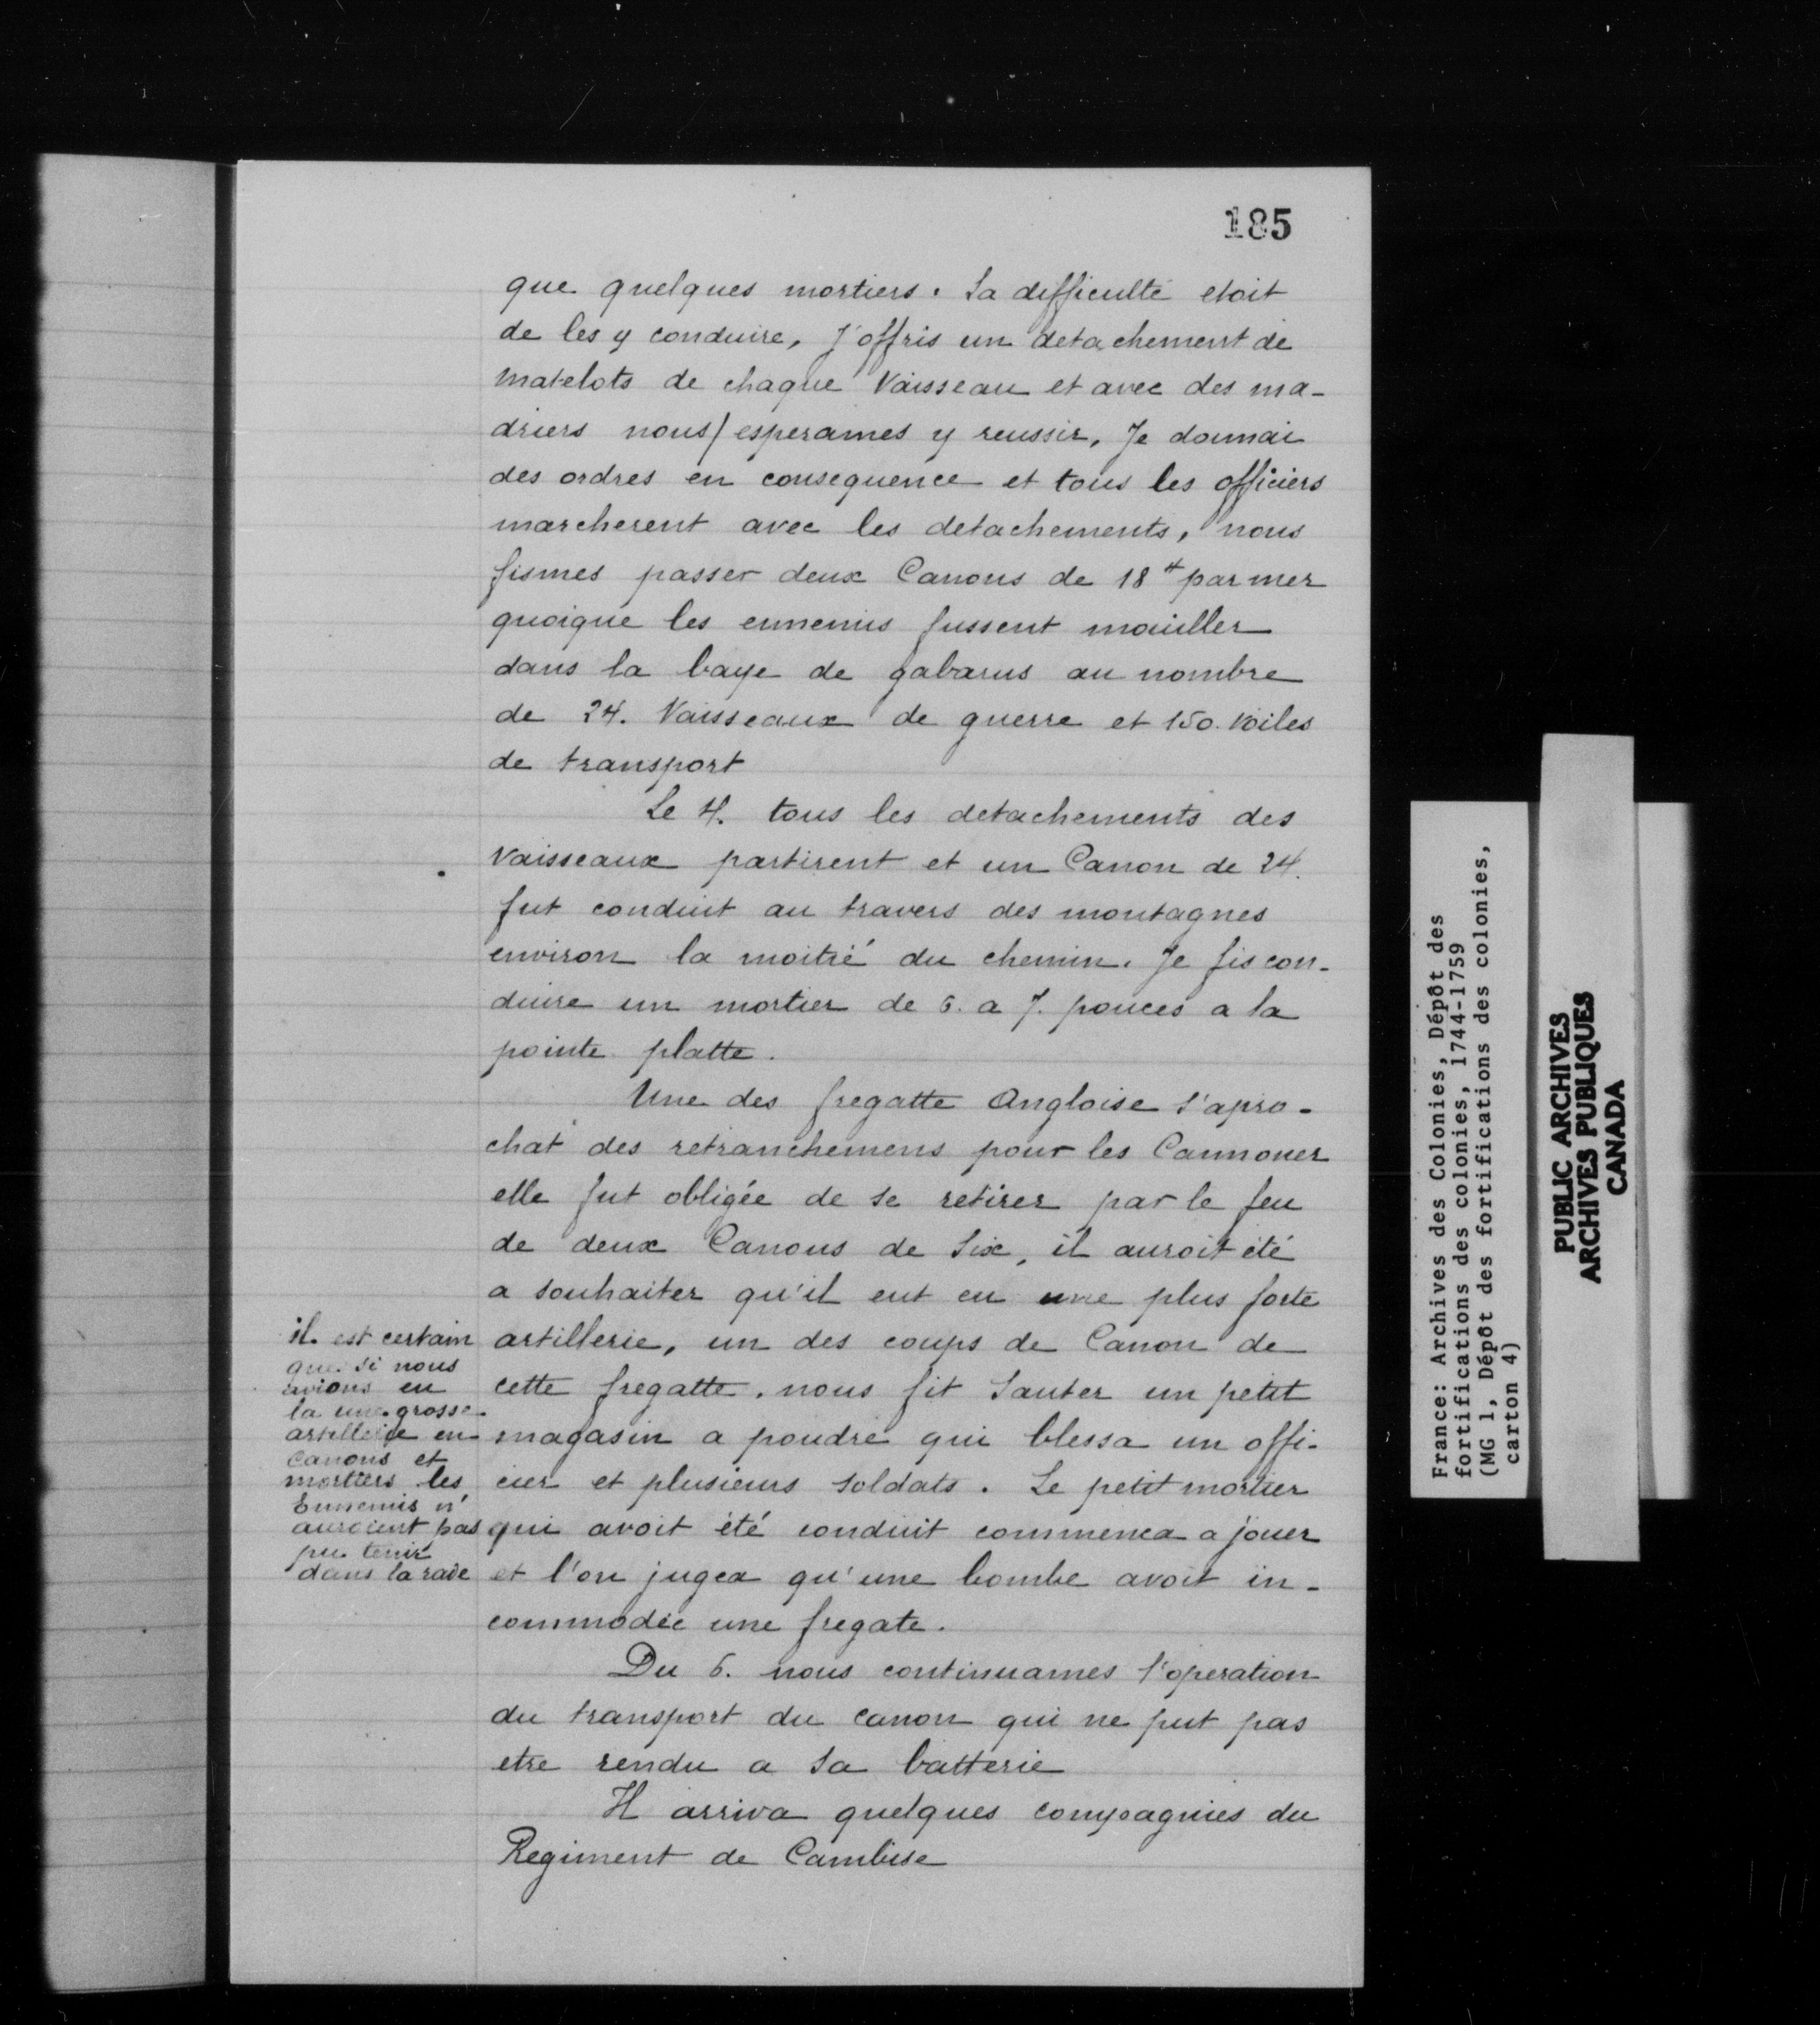 185
que quelques mortiers. La difficulté etoit
de les y conduire, J'offris un detachement de
matelots de chaque Vaisseau et avec des ma-
driers nous/esperames y reussir, Je donnai
des ordres en consequence et tous les officiers
marcherent avec les detachements, nous
fismes passer deux Canons de 18# par mer
quoique les ennemis fussent mouiller
dans la baye de gabarus au nombre
de 24. Vaisseaux de guerre et 150. voiles
de transport
Le 4. tous les detachements des
Vaisseaux partirent et un Canon de 24.
fut conduit au travers des montagnes
environ la moitié du chemin. Je fis con-
duire un mortier de 6. a 7. pouces a la
pointe platte.
Une des fregatte Angloise s'apro-
chat des retranchemens pour les Cannoner
elle fut obligée de se retirer par le feu
de deux Canons de Six, il auroit été
a souhaiter qu'il eut eu une plus forte
artillerie, un des coups de Canon de
cette fregatte. nous fit Sauter un petit
magasin a poudre qui blessa un offi-
cier et plusieurs soldats. Le petit mortier
qui avoit été conduit commenca a jouer
et l'on jugea qu'une bombe avoit in-
commodée une fregate.
Du 6. nous continuames l'operation
du transport du canon qui ne put pas
etre rendu a sa batterie
Il arriva quelques compagnies du
Regiment de Cambise
il est certain
que si nous
avions eu
la une grosse
artillerie en
canons et
mortiers les
Ennemis n'
auroient pas
pu tenir
dans la rade
France: Archives des Colonies, Dépôt des
fortifications des colonies, 1744-1759
(MG 1, Dépôt des fortifications des colonies,
carton 4)
PUBLIC ARCHIVES
ARCHIVES PUBLIQUES
CANADA